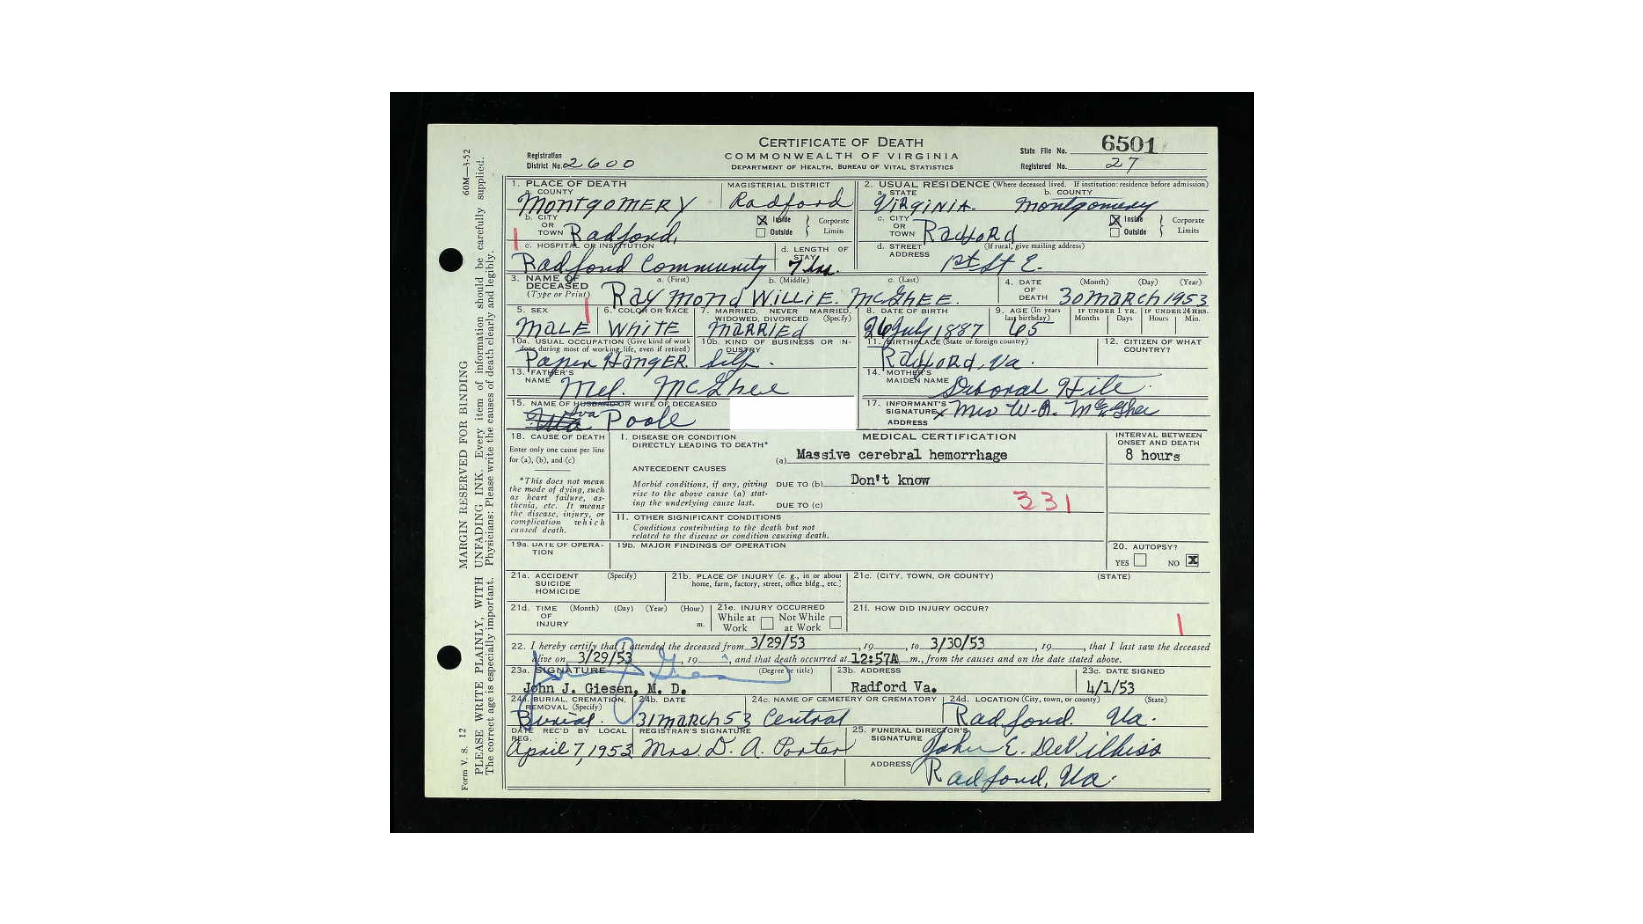 CERTIFICATE OF DEATH
COMMONWEALTH OF VIRGINIA
DEPARTMENT OF HEALTH, BUREAU OF VITAL STATISTICS
Registration District No. 2600
State File No. 6501
Registered No. 27
60M—3-52
MARGIN RESERVED FOR BINDING
PLEASE WRITE PLAINLY, WITH UNFADING INK. Every item of information should be carefully supplied.
The correct age is especially important. Physicians: Please write the causes of death clearly and legibly.
Form V. S. 12
1. PLACE OF DEATH
a. COUNTY
MONTGOMERY
MAGISTERIAL DISTRICT
Radford
2. USUAL RESIDENCE (Where deceased lived. If institution: residence before admission)
a. STATE
VIRGINIA.
b. COUNTY
Montgomery
b. CITY OR TOWN Radford,
Inside
Outside
Corporate Limits
c. CITY OR TOWN Radford
Inside
Outside
Corporate Limits
c. HOSPITAL OR INSTITUTION
Radford Community
d. LENGTH OF STAY
d. STREET ADDRESS (If rural, give mailing address)
1st St E.
3. NAME OF DECEASED (Type or Print)
a. (First) b. (Middle) c. (Last)
RayMond WILLIE. McGhEE.
4. DATE OF DEATH (Month) (Day) (Year)
30 MARCH 1953
5. SEX
MALE
6. COLOR OR RACE
WHITE
7. MARRIED, NEVER MARRIED, WIDOWED, DIVORCED (Specify)
MARRIEd
8. DATE OF BIRTH
26 July 1887
9. AGE (In years last birthday)
65
IF UNDER 1 YR. Months Days
IF UNDER 24 HRS. Hours Min.
10a. USUAL OCCUPATION (Give kind of work done during most of working life, even if retired)
Paper HANGER
10b. KIND OF BUSINESS OR INDUSTRY
Self.
11. BIRTHPLACE (State or foreign country)
Radford, Va.
12. CITIZEN OF WHAT COUNTRY?
13. FATHER'S NAME
Mel. McGhee
14. MOTHER'S MAIDEN NAME
Deborah Hile
15. NAME OF HUSBAND OR WIFE OF DECEASED
Eva Poole
17. INFORMANT'S SIGNATURE x Mrs W. R. McGhee
ADDRESS
18. CAUSE OF DEATH
Enter only one cause per line for (a), (b), and (c)
*This does not mean the mode of dying, such as heart failure, asthenia, etc. It means the disease, injury, or complication which caused death.
MEDICAL CERTIFICATION
INTERVAL BETWEEN ONSET AND DEATH
I. DISEASE OR CONDITION DIRECTLY LEADING TO DEATH*
(a) Massive cerebral hemorrhage
8 hours
ANTECEDENT CAUSES
Morbid conditions, if any, giving rise to the above cause (a) stating the underlying cause last.
DUE TO (b) Don't know
DUE TO (c)
331
II. OTHER SIGNIFICANT CONDITIONS
Conditions contributing to the death but not related to the disease or condition causing death.
19a. DATE OF OPERATION
19b. MAJOR FINDINGS OF OPERATION
20. AUTOPSY?
YES NO X
21a. ACCIDENT SUICIDE HOMICIDE (Specify)
21b. PLACE OF INJURY (e. g., in or about home, farm, factory, street, office bldg., etc.)
21c. (CITY, TOWN, OR COUNTY) (STATE)
21d. TIME OF INJURY (Month) (Day) (Year) (Hour) m.
21e. INJURY OCCURRED
While at Work Not While at Work
21f. HOW DID INJURY OCCUR?
22. I hereby certify that I attended the deceased from 3/29/53, 19, to 3/30/53, 19, that I last saw the deceased
alive on 3/29/53, 19, and that death occurred at 12:57A m., from the causes and on the date stated above.
23a. SIGNATURE (Degree or title)
John J. Giesen, M. D.
23b. ADDRESS
Radford Va.
23c. DATE SIGNED
4/1/53
24a. BURIAL, CREMATION, REMOVAL (Specify)
Burial.
24b. DATE
31 MARCH 53
24c. NAME OF CEMETERY OR CREMATORY
Central
24d. LOCATION (City, town, or county) (State)
Radford. Va.
DATE REC'D BY LOCAL REG.
April 7, 1953
REGISTRAR'S SIGNATURE
Mrs. D. A. Porter
25. FUNERAL DIRECTOR'S SIGNATURE
John E. DeVilbiss
ADDRESS
Radford, Va.